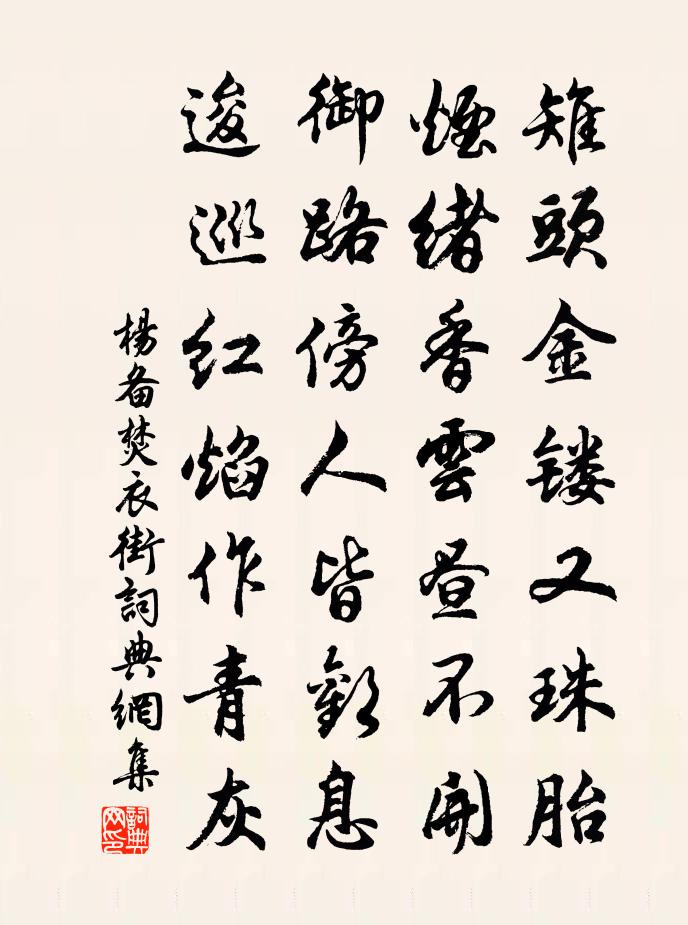 雉頭金镂又珠胎
煙緒香雲昼不開
御路傍人皆歎息
逡巡红焰作青灰
楊备焚衣街詞典網集
詞典网印